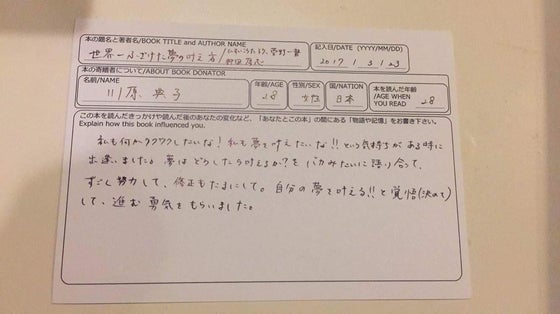 本の題名と著者名/BOOK TITLE and AUTHOR NAME
世界一ふざけた夢の叶え方/ひすいこたろう, 菅野一勢
柳田厚志
記入日/DATE (YYYY/MM/DD)
2017 / 3 / 23
本の寄贈者について/ABOUT BOOK DONATOR
名前/NAME
川原 典子
年齢/AGE
28
性別/SEX
女性
国/NATION
日本
本を読んだ年齢
/AGE WHEN
YOU READ
28
この本を読んだきっかけや読んだ後のあなたの変化など、「あなたとこの本」の間にある「物語や記憶」をお書き下さい。
Explain how this book influenced you.
私も何かワクワクしたいな!私も夢を叶えたいな!!という気持ちがある時に
出逢いました。夢はどうしたら叶えるか?をバカみたいに語り合って、
すごく努力して、修正もたまにして。自分の夢を叶える!!と覚悟(決めて)
して、進む勇気をもらいました。